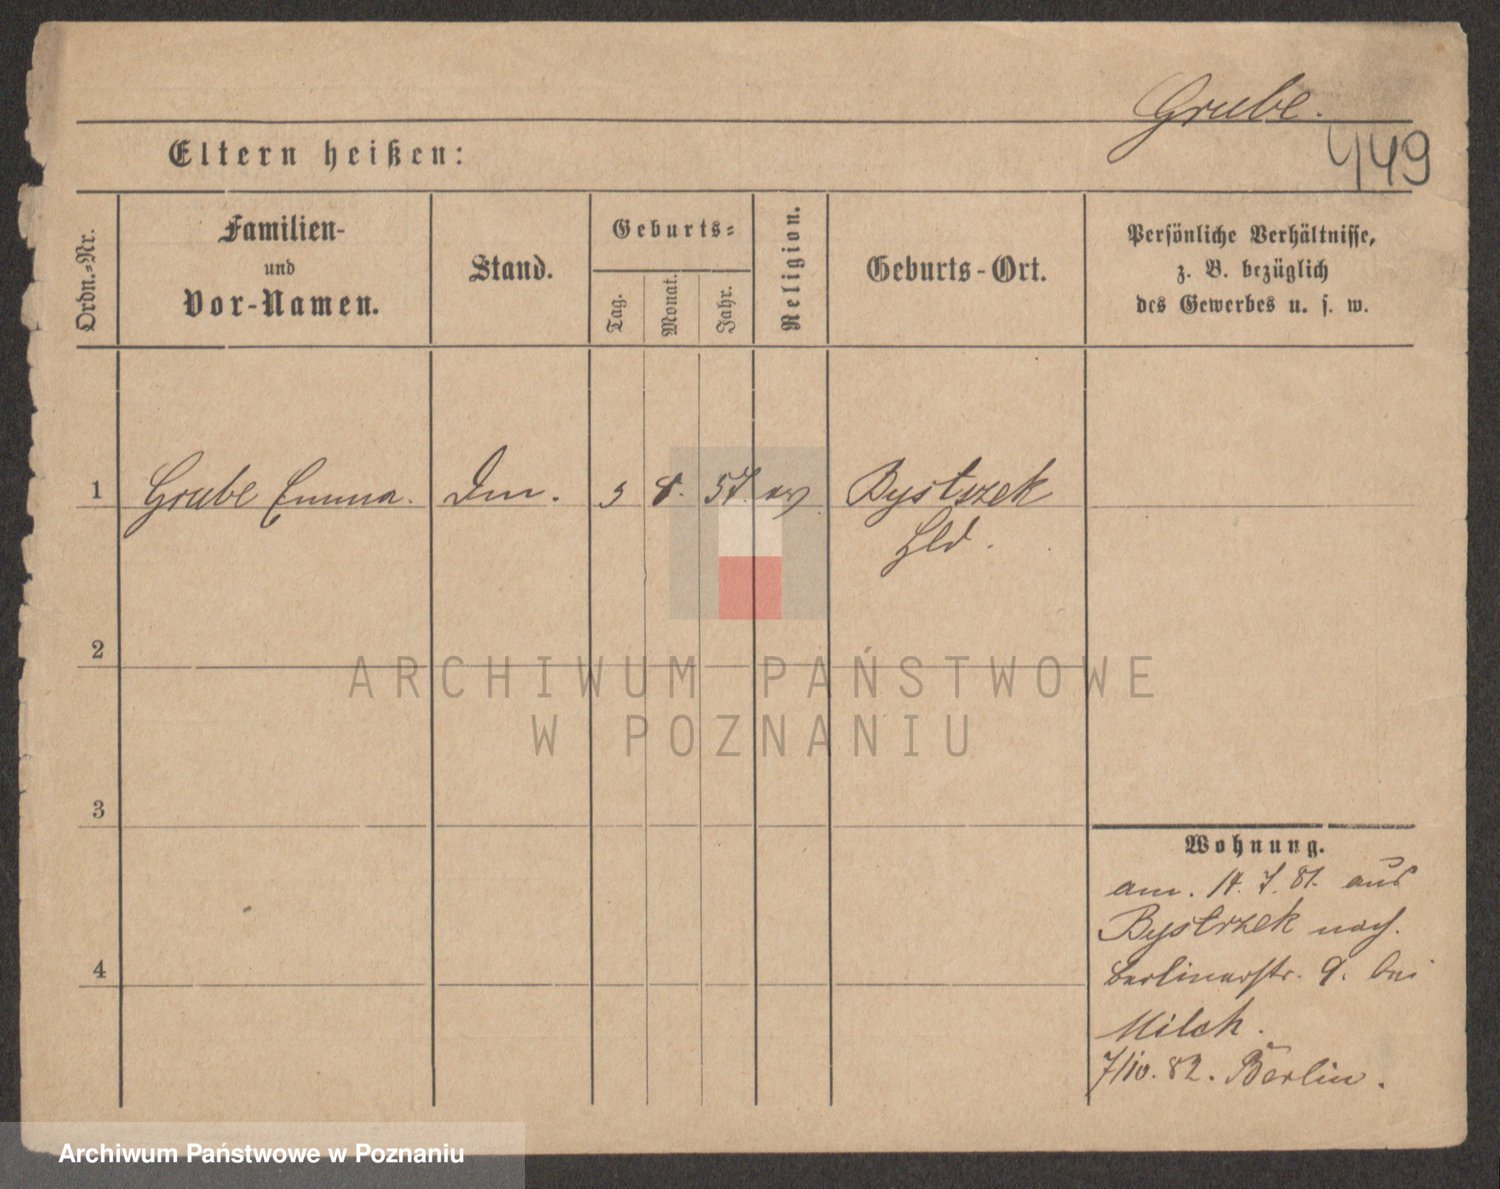 Grube.
449
Eltern heißen:
Ordn.=Nr.
Familien-
und
Vor-Namen.
Stand.
Geburts=
Tag.
Monat.
Jahr.
Religion.
Geburts-Ort.
Persönliche Verhältnisse,
z. B. bezüglich
des Gewerbes u. s. w.
1 Grube Emma. 8. 57. ev Bystszek
Hld.
2
3
4
Wohnung.
am. 14. 7. 81. aus
Bystrzek nach.
Berlinerstr. 9. bei
Milch.
7/10. 82. Berlin.
ARCHIWUM PAŃSTWOWE
W POZNANIU
Archiwum Państwowe w Poznaniu